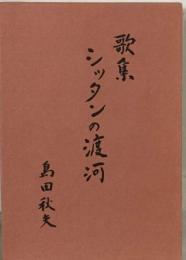 歌集
シッタンの渡河
島田秋夫